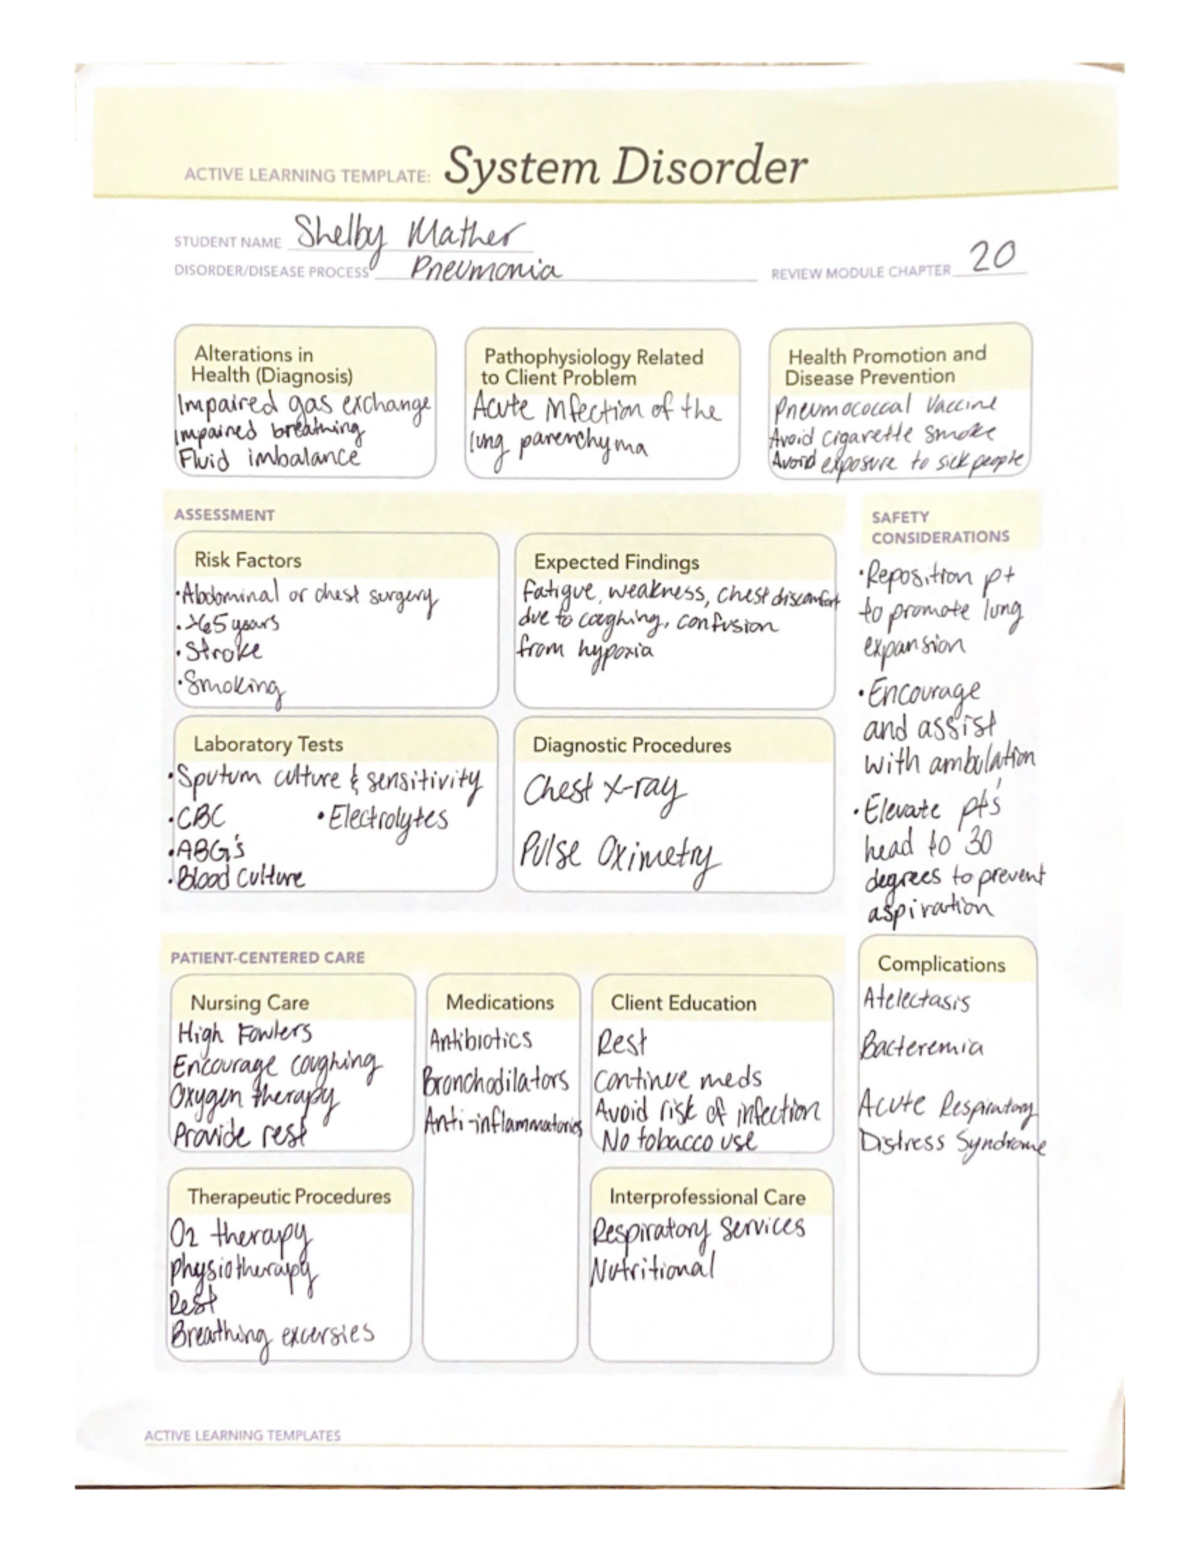 ACTIVE LEARNING TEMPLATE: System Disorder
STUDENT NAME Shelby Mather
DISORDER/DISEASE PROCESS Pneumonia
REVIEW MODULE CHAPTER 20
Alterations in
Health (Diagnosis)
Impaired gas exchange
Impaired breathing
Fluid imbalance
Pathophysiology Related
to Client Problem
Acute infection of the
lung parenchyma
Health Promotion and
Disease Prevention
Pneumococcal Vaccine
Avoid cigarette smoke
Avoid exposure to sick people
ASSESSMENT
Risk Factors
•Abdominal or chest surgery
•>65 years
•Stroke
•Smoking
Expected Findings
fatigue, weakness, chest discomfort
due to coughing, confusion
from hypoxia
Laboratory Tests
•Sputum culture & sensitivity
•CBC •Electrolytes
•ABG's
•Blood culture
Diagnostic Procedures
Chest x-ray
Pulse Oximetry
SAFETY
CONSIDERATIONS
•Reposition pt
to promote lung
expansion
•Encourage
and assist
with ambulation
•Elevate pt's
head to 30
degrees to prevent
aspiration
PATIENT-CENTERED CARE
Nursing Care
High Fowlers
Encourage coughing
Oxygen therapy
Provide rest
Medications
Antibiotics
Bronchodilators
Anti-inflammatories
Client Education
Rest
Continue meds
Avoid risk of infection
No tobacco use
Therapeutic Procedures
O2 therapy
physiotherapy
Rest
Breathing excersies
Interprofessional Care
Respiratory Services
Nutritional
Complications
Atelectasis
Bacteremia
Acute Respiratory
Distress Syndrome
ACTIVE LEARNING TEMPLATES